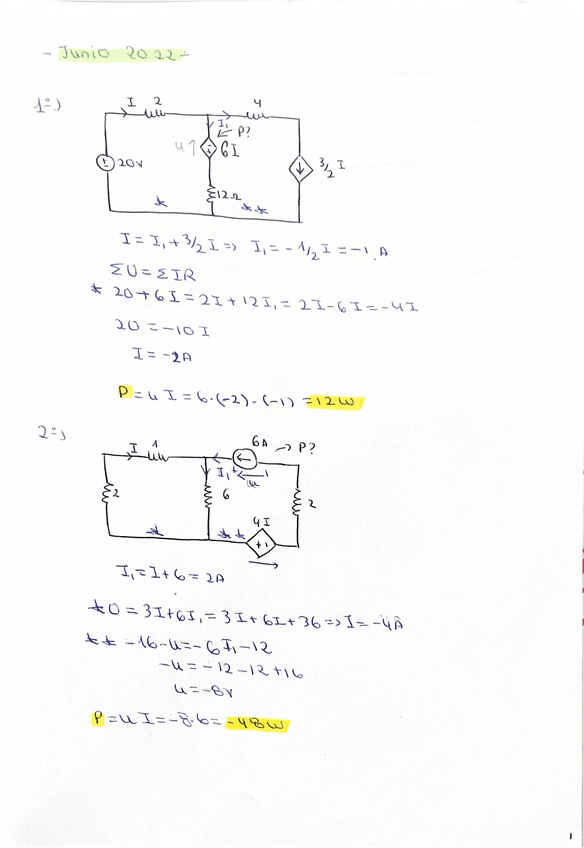 - Junio 2022 -
1º)
I 2 4
I₁ P?
u↑ 6I
20V 3/2 I
12Ω
* **
I = I₁ + 3/2 I => I₁ = -1/2 I = -1 A
ΣU = ΣIR
* 20 + 6I = 2I + 12I₁ = 2I - 6I = -4I
20 = -10I
I = -2A
P = u I = 6·(-2)·(-1) = 12W
2º)
I 1 6A → P?
I₁ + u
2 6 2
* ** 4I
+ -
I₁ = I + 6 = 2A
* 0 = 3I + 6I₁ = 3I + 6I + 36 => I = -4A
** -16 - u = -6I₁ - 12
-u = -12 - 12 + 16
u = -8V
P = u I = -8·6 = -48W
1